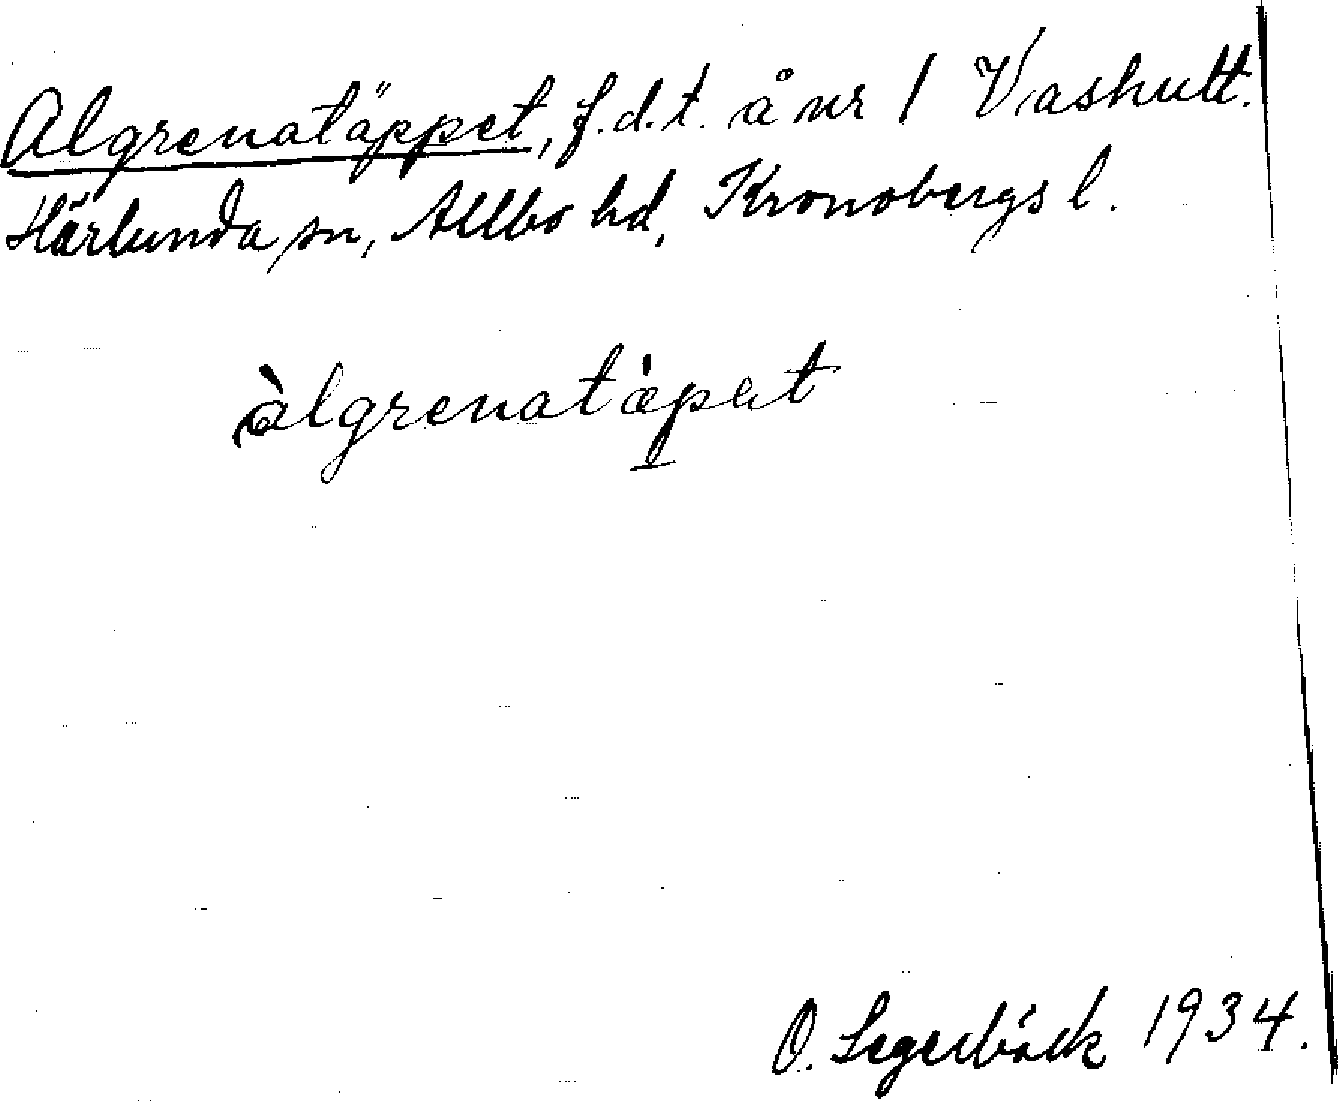 Algrenatäppet, f.d.t. å nr 1 Vashult.
Härlunda sn, Allbo hd, Kronobergs l.
àlgrenatàpət
O. Segerbäck 1934.